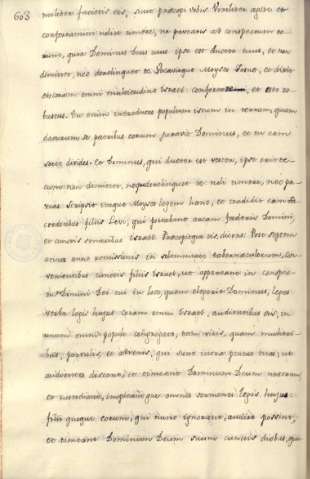 603
facietis eis, sicut præcepi vobis. Viriliter agite et
confortamini nolite timere, nec paveatis ad conspectum eo-
rum, quia Dominus Deus tuus ipse est ductor tuus, et non
dimittet, nec derelinquet te. Vocavitque Moyses Josue, et dixit ei
coram omni multitudine Israel: confortare, et esto ro-
bustus. Tu enim introduces populum istum in terram, quam
daturum se patribus eorum juravit Dominus, et tu eam
sorte divides. Et Dominus, qui ductor est vester, ipse erit te-
cum non dimittet, neque derelinquet te noli timere, nec pa-
veas. Scripsit itaque Moyses legem hanc, et tradidit eam sa-
cerdotibus filiis Levi, qui portabant arcam fœderis Domini,
et cunctis senioribus Israel. Præcepitque eis, dicens: Post septem
annos anno remissionis in solemnitate tabernaculorum, con-
venientibus cunctis filiis Israel, ut appareant in conspec-
tu Domini Dei tui in loco, quem elegerit Dominus, leges
verba legis hujus coram omni Israel, audientibus eis, in
unum omni populo congregato, tam viris, quam mulieri-
bus, parvulis, et advenis, qui sunt intra portas tuas, ut
audientes discant, et timeant Dominum Deum vestrum,
et custodiant, impleantque omnes sermones legis hujus
filii quoque eorum, qui nunc ignorant, audire possint,
et timeant Dominum Deum suum cunctis diebus, qui